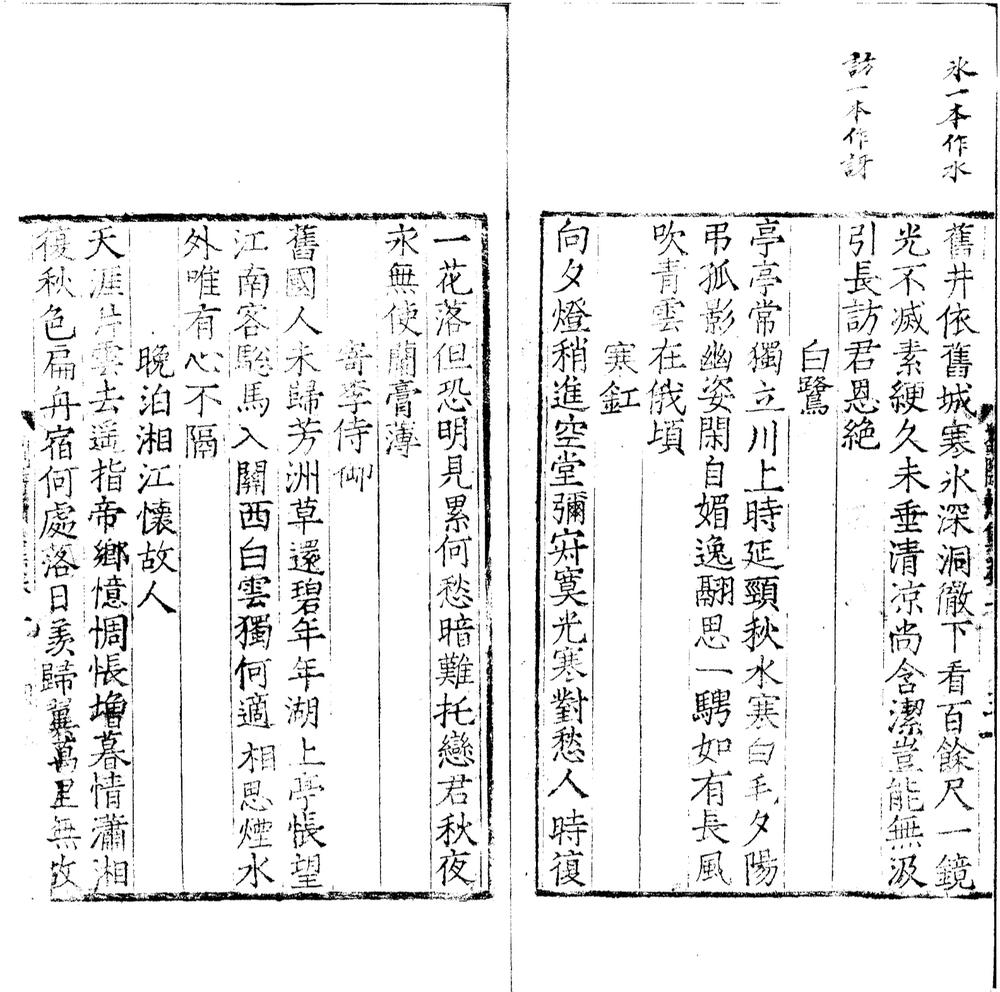 氷一本作水
訪一本作訝
舊井依舊城寒氷深洞徹下看百餘尺一鏡
光不滅素綆久未垂清凉尚含潔豈能無汲
引長訪君恩絶
白鷺
亭亭常獨立川上時延頸秋水寒白毛夕陽
弔孤影幽姿閑自媚逸翮思一騁如有長風
吹青雲在俄頃
寒釭
向夕燈稍進空堂彌寂寞光寒對愁人時復
一花落但恐明見累何愁暗難托戀君秋夜
永無使蘭膏薄
寄李侍御
舊國人未歸芳洲草還碧年年湖上亭悵望
江南客驄馬入關西白雲獨何適相思煙水
外唯有心不隔
晚泊湘江懷故人
天涯片雲去遥指帝鄉憶惆悵增暮情瀟湘
復秋色扁舟宿何處落日羨歸翼萬里無故